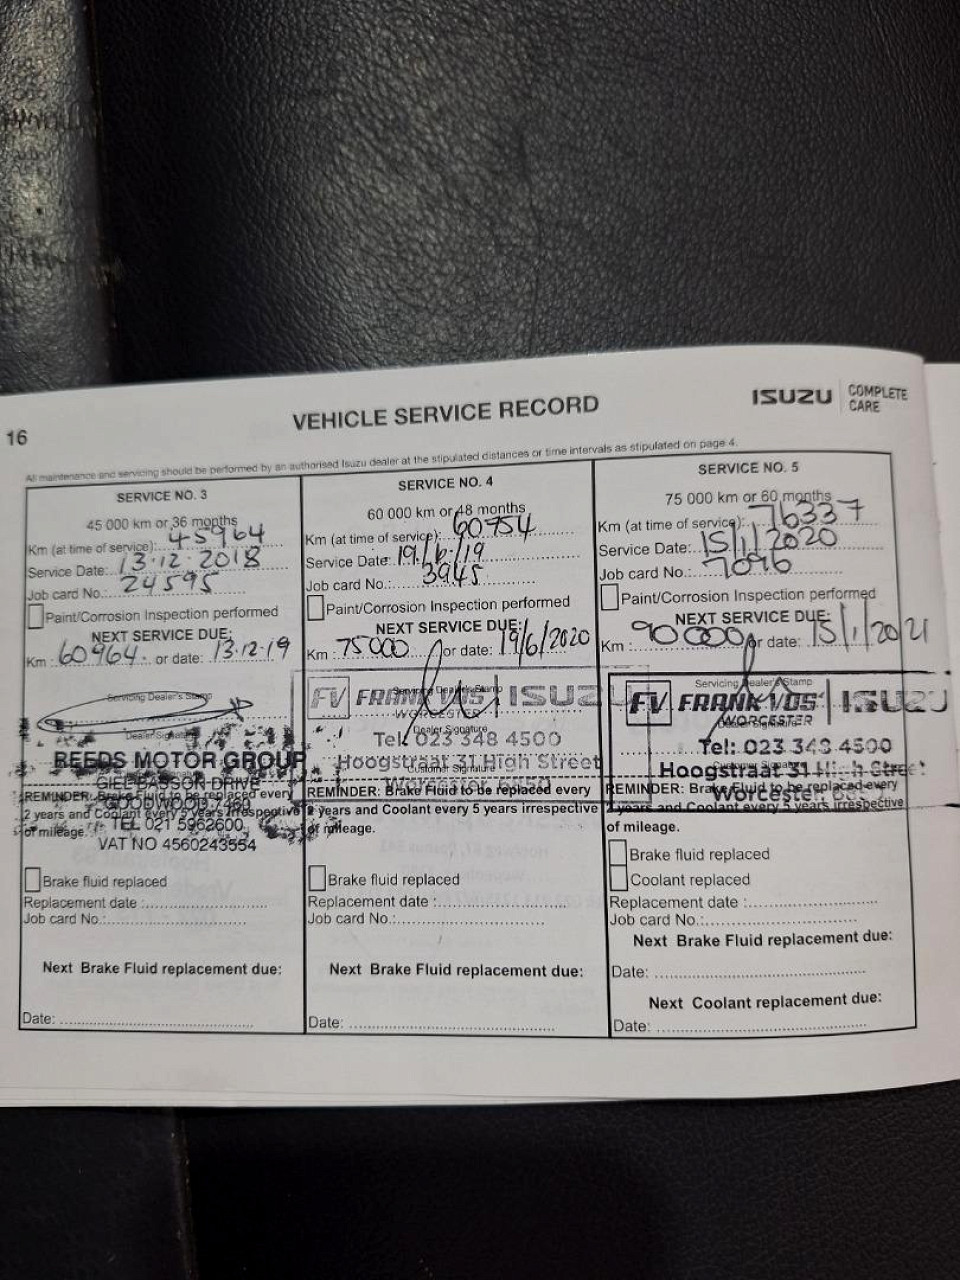 16
VEHICLE SERVICE RECORD
ISUZU COMPLETE CARE
All maintenance and servicing should be performed by an authorised Isuzu dealer at the stipulated distances or time intervals as stipulated on page 4.
SERVICE NO. 3
45 000 km or 36 months
Km (at time of service): 45964
Service Date: 13.12.2018
Job card No.: 24595
Paint/Corrosion Inspection performed
NEXT SERVICE DUE:
Km: 60964. or date: 13.12.19
Servicing Dealer's Stamp
Dealer Signature
REEDS MOTOR GROUP
GIEL BASSON DRIVE
GOODWOOD 7460
TEL 021 5962600
VAT NO 4560243554
REMINDER: Brake Fluid to be replaced every
2 years and Coolant every 5 years irrespective
of mileage.
Brake fluid replaced
Replacement date :
Job card No.:
Next Brake Fluid replacement due:
Date:
SERVICE NO. 4
60 000 km or 48 months
Km (at time of service): 60754
Service Date: 19/6/19
Job card No.: 3945
Paint/Corrosion Inspection performed
NEXT SERVICE DUE:
Km : 75000 or date: 19/6/2020
Servicing Dealer's Stamp
FV FRANK VOS ISUZU
WORCESTER
Dealer Signature
Tel: 023 348 4500
Hoogstraat 31 High Street
Customer Signature
REMINDER: Brake Fluid to be replaced every
2 years and Coolant every 5 years irrespective
of mileage.
Brake fluid replaced
Replacement date :
Job card No.:
Next Brake Fluid replacement due:
Date:
SERVICE NO. 5
75 000 km or 60 months
Km (at time of service): 76337
Service Date: 15/1/2020
Job card No.: 7096
Paint/Corrosion Inspection performed
NEXT SERVICE DUE:
Km : 90000 or date: 15/1/2021
Servicing Dealer's Stamp
FV FRANK VOS ISUZU
WORCESTER
Tel: 023 348 4500
Hoogstraat 31 High Street
Worcester
REMINDER: Brake Fluid to be replaced every
2 years and Coolant every 5 years irrespective
of mileage.
Brake fluid replaced
Coolant replaced
Replacement date :
Job card No.:
Next Brake Fluid replacement due:
Date:
Next Coolant replacement due:
Date: